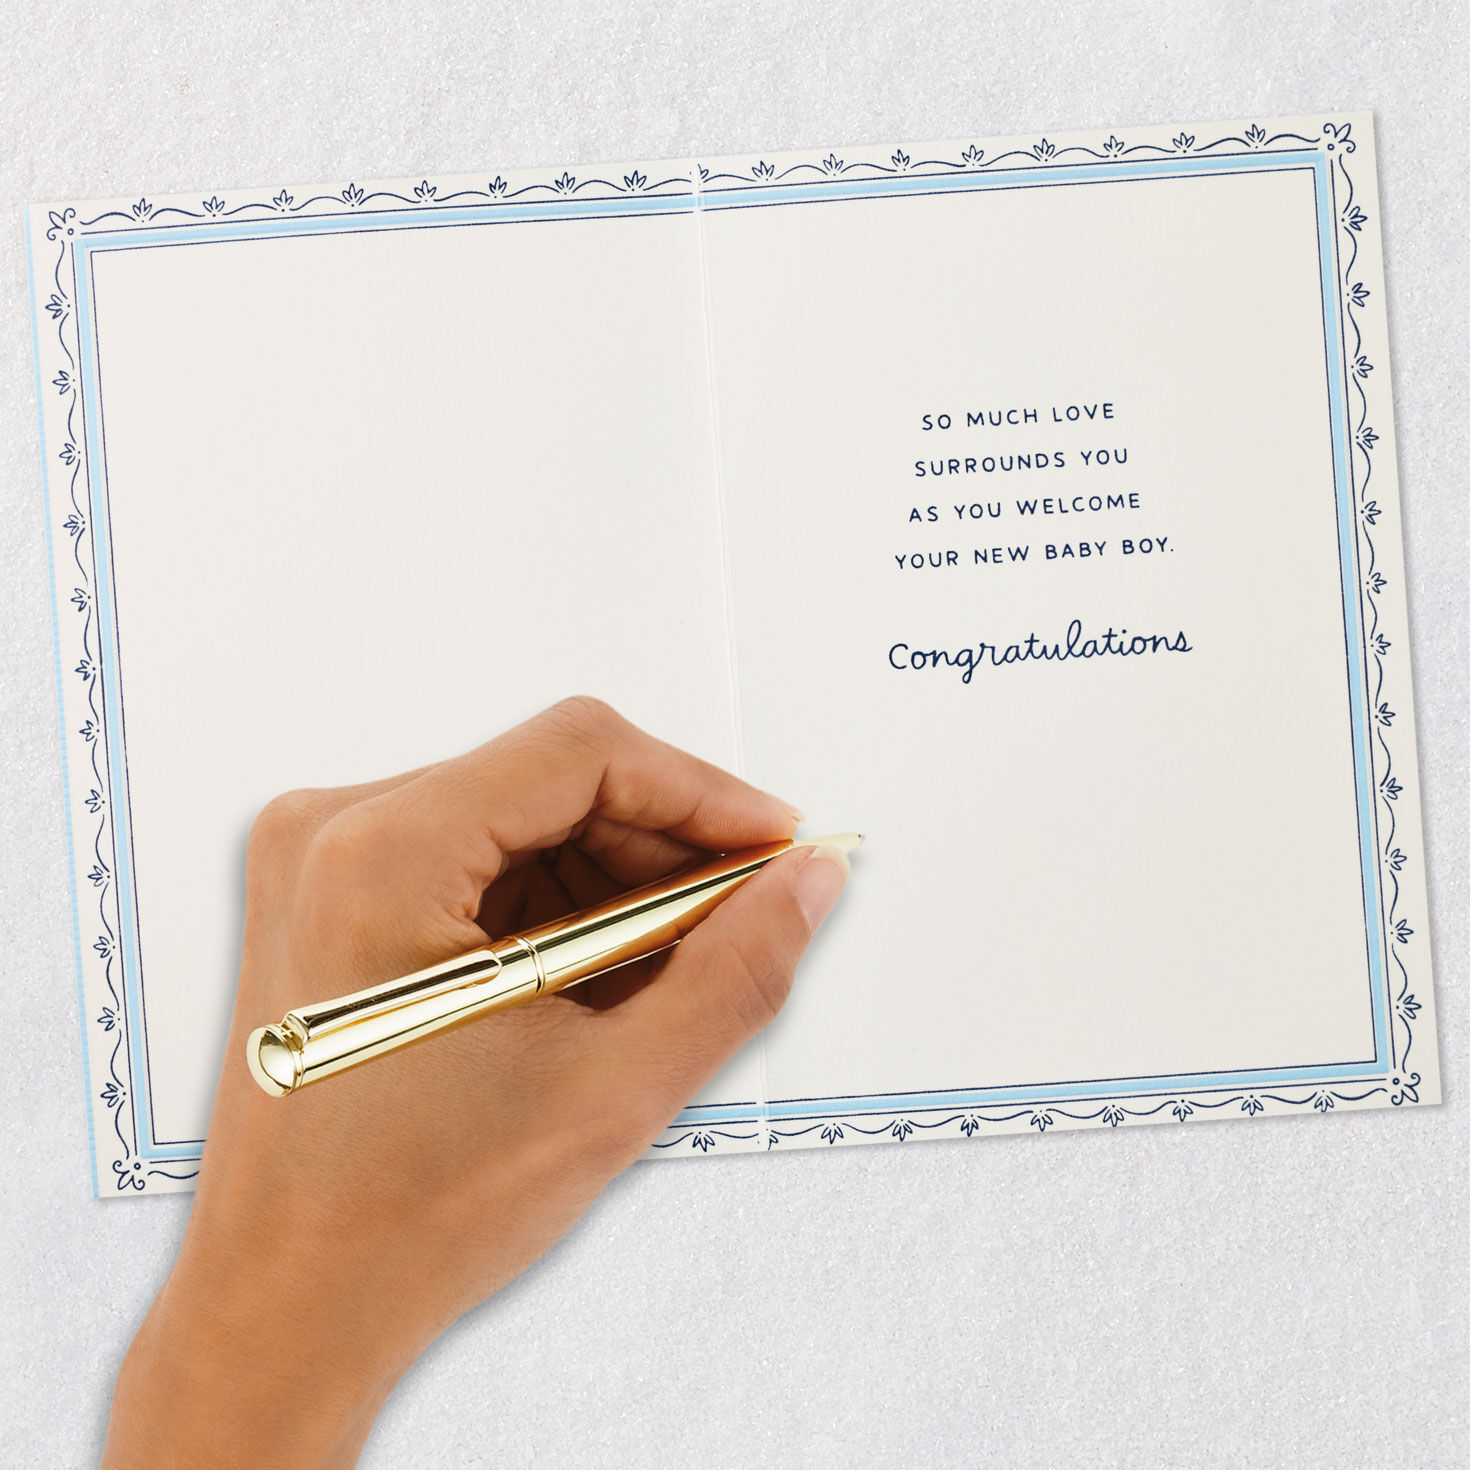 SO MUCH LOVE
SURROUNDS YOU
AS YOU WELCOME
YOUR NEW BABY BOY.
Congratulations